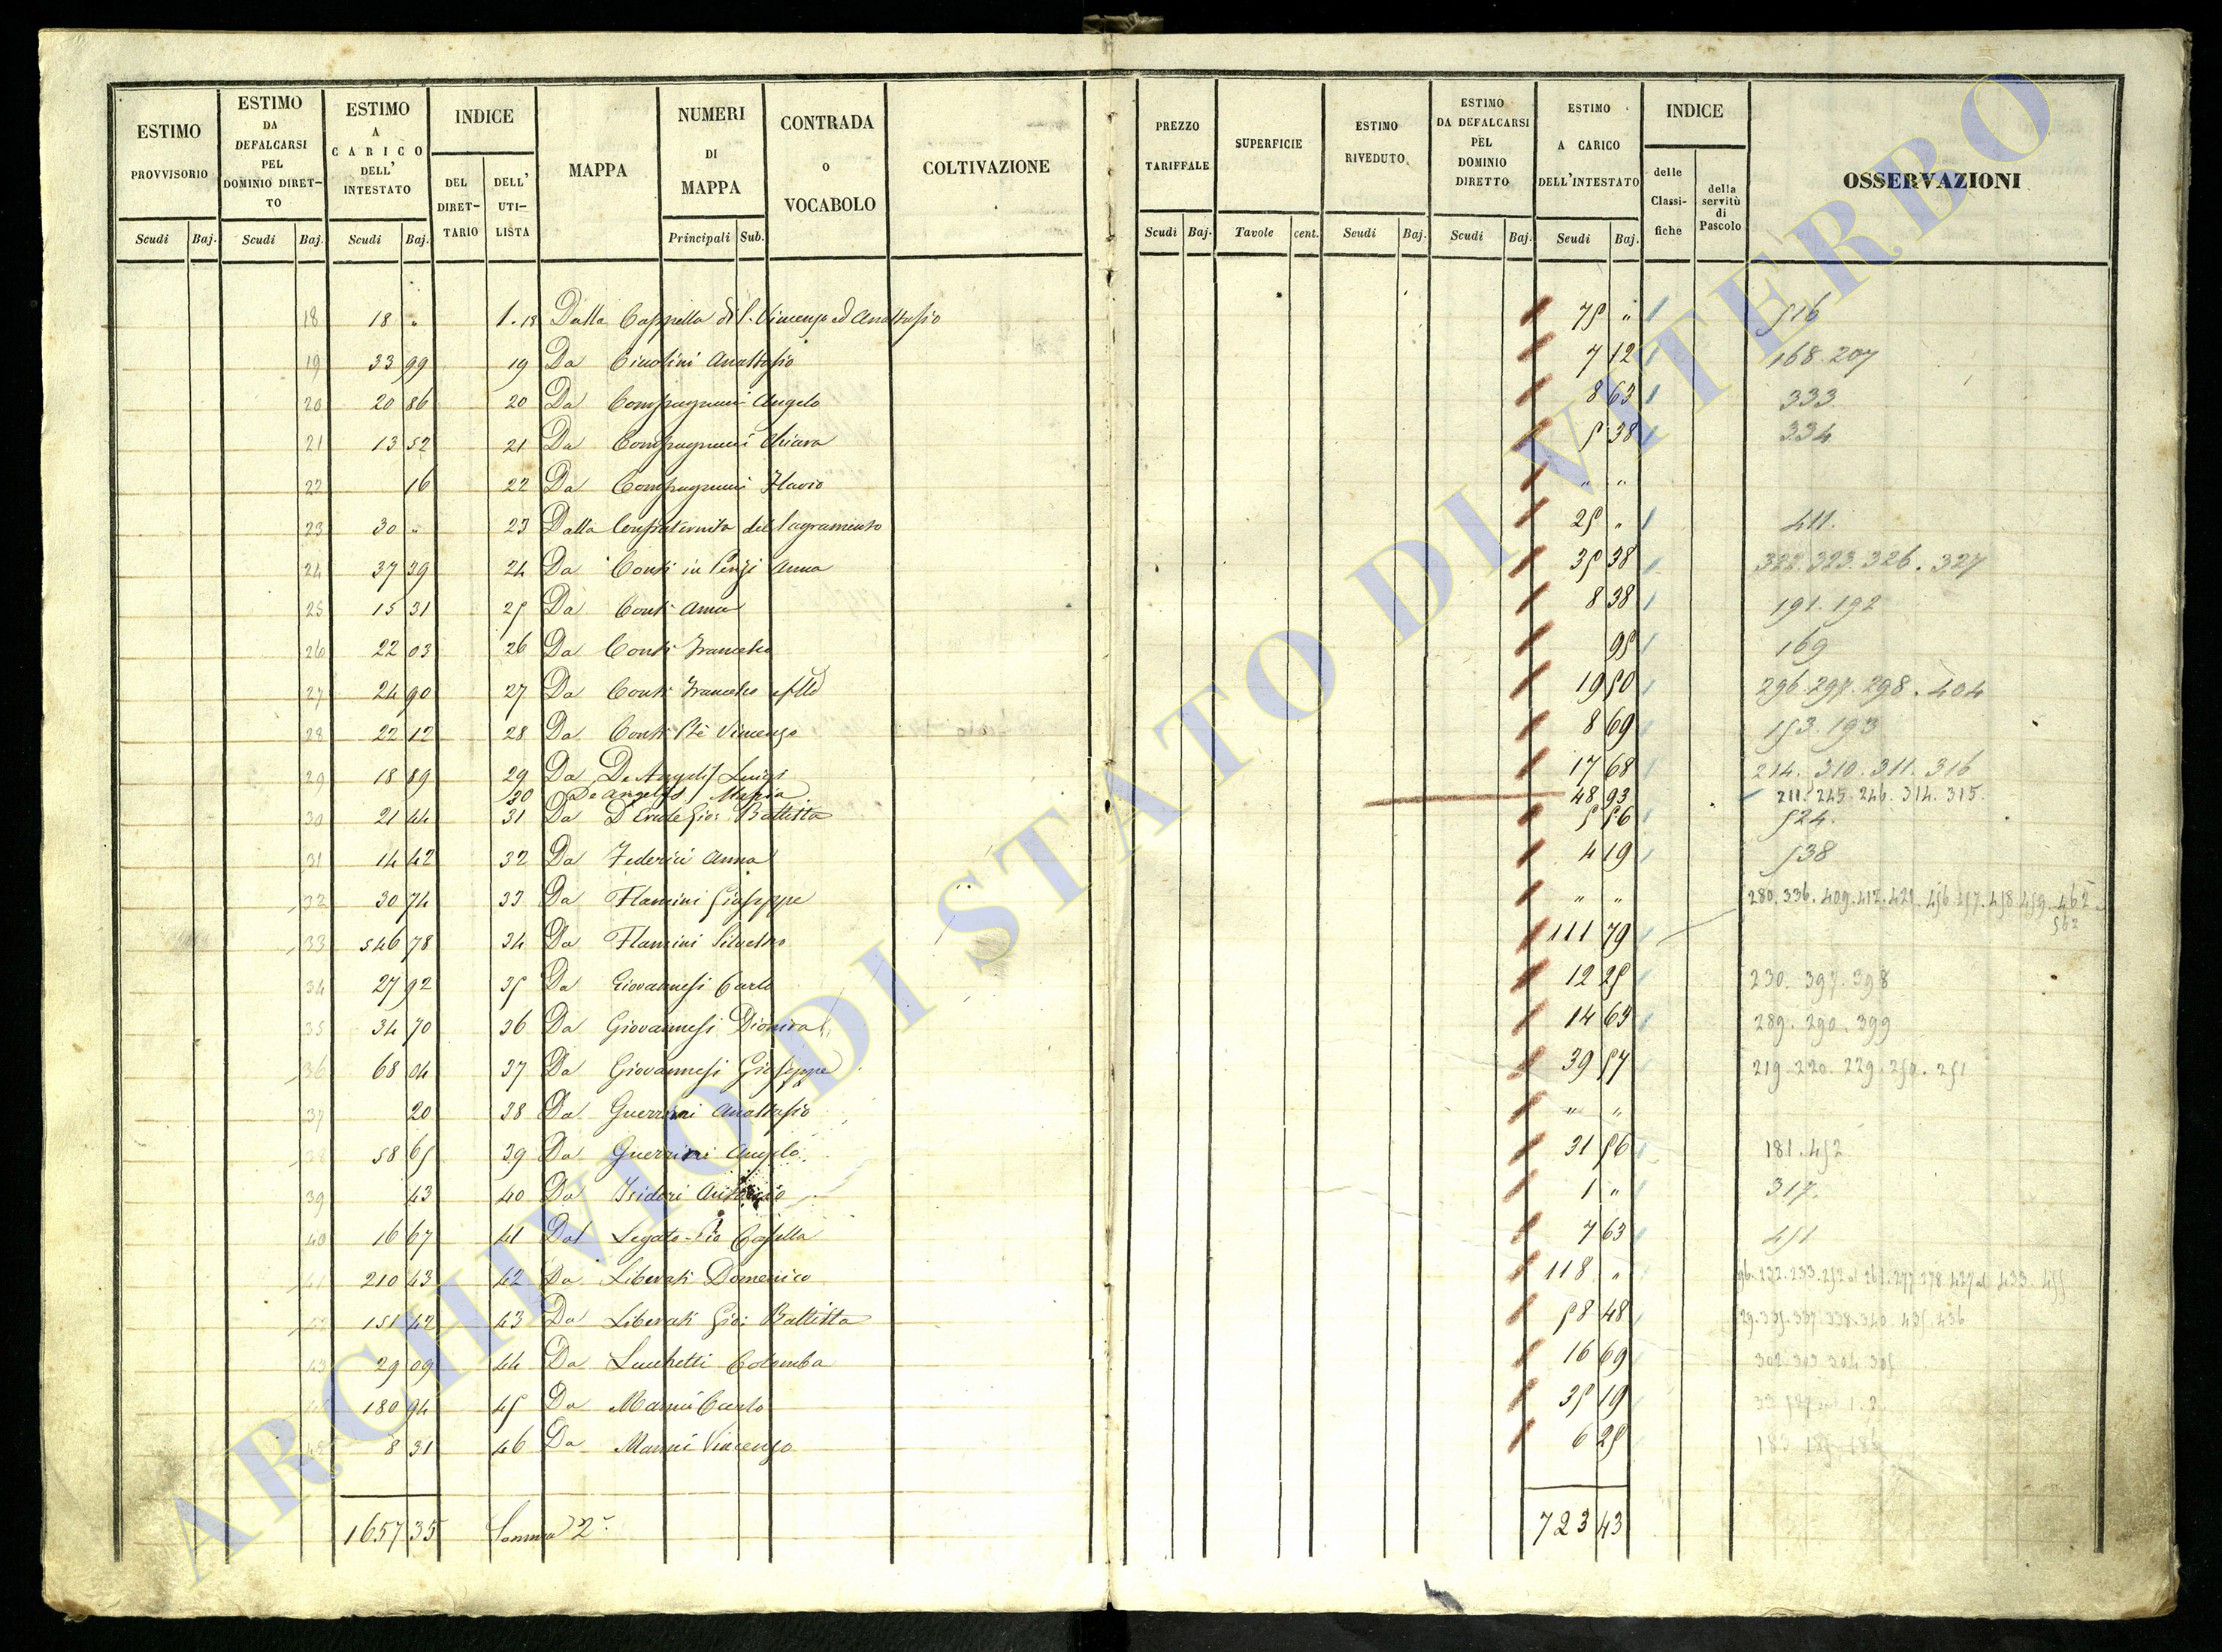 ESTIMO PROVVISORIO
ESTIMO DA DEFALCARSI PEL DOMINIO DIRET-TO
ESTIMO A CARICO DELL' INTESTATO
INDICE
DEL DIRET-TARIO
DELL' UTI-LISTA
MAPPA
NUMERI DI MAPPA
CONTRADA o VOCABOLO
COLTIVAZIONE
Scudi Baj. Scudi Baj. Scudi Baj. Principali Sub.
PREZZO TARIFFALE
SUPERFICIE
ESTIMO RIVEDUTO
ESTIMO DA DEFALCARSI PEL DOMINIO DIRETTO
ESTIMO A CARICO DELL'INTESTATO
INDICE
delle Classi-fiche
della servitù di Pascolo
OSSERVAZIONI
Scudi Baj. Tavole cent. Scudi Baj. Scudi Baj. Scudi Baj.
18 18 " 1.18 Dalla Cappella di S. Vincenzo ed Anastasio 75 " 516
19 33 99 19 Da Anastasio 7 12 168. 207
20 20 86 20 Da Compagnucci Angelo 8 63 333
21 13 52 21 Da Compagnucci Chiara 5 38 334
22 16 22 Da Compagnucci Flavio " "
23 30 " 23 Dalla Confraternita del Sagramento 25 " 411.
24 37 39 24 Da Conti in Anna 35 38 322. 323. 326. 327
25 15 31 25 Da Conti Anna 8 38 191. 192
26 22 03 26 Da Conti Francesco 95 169
27 24 90 27 Da Conti Francesco 19 50 296. 297. 298. 404
28 22 12 28 Da Conti Vincenzo 8 69 153. 193
29 18 89 29 Da De Angelis Luigi 17 68 214. 310. 311. 316
30 De Angelis Maria 48 93 211. 245. 246. 314. 315.
30 21 44 31 Da Gio: Battista 5 56 524.
31 14 42 32 Da Federici Anna 4 19 538
32 30 74 33 Da Flamini Giuseppe " " 280. 336. 409. 417. 421. 456. 457. 458. 459. 462
562
33 546 78 34 Da Flamini Silvestro 111 79
34 27 92 35 Da Giovannesi Carlo 12 25 230. 397. 398
35 34 70 36 Da Giovannesi Dionira 14 63 289. 290. 399
36 68 04 37 Da Giovannesi Giuseppe 39 57 219. 220. 229. 250. 251
37 20 38 Da Guerrini Anastasio " "
58 65 39 Da Guerrini Angelo 31 56 181. 452
39 43 40 Da Isidori Antonio 1 " 317.
40 16 67 41 Dal Legato Pio Casella 7 63 451
41 210 43 42 Da Liberati Domenico 118 "
151 42 43 Da Liberati Gio: Battista 58 48 335. 337. 338. 340. 435. 436
43 29 09 44 Da Lucchetti Colomba 16 69 302. 303. 304. 305
180 94 45 Da Manni Carlo 35 19
45 8 31 46 Da Manni Vincenzo 6 25 183. 185. 186
1657 35 Somma 2ª.
723 43
ARCHIVIO DI STATO DI VITERBO